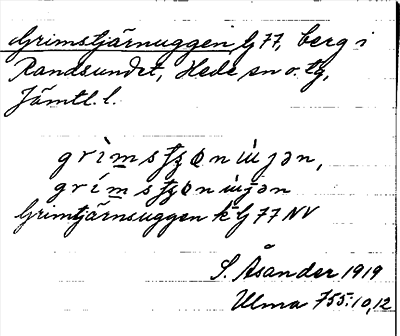 Grimstjärnuggen, G 77, berg i
Randsundet, Hede sn o. tg,
Jämtl. l.
Grimtjärnsuggen k. G 77 NV
S. Åsander 1919
Ulma 755:10,12